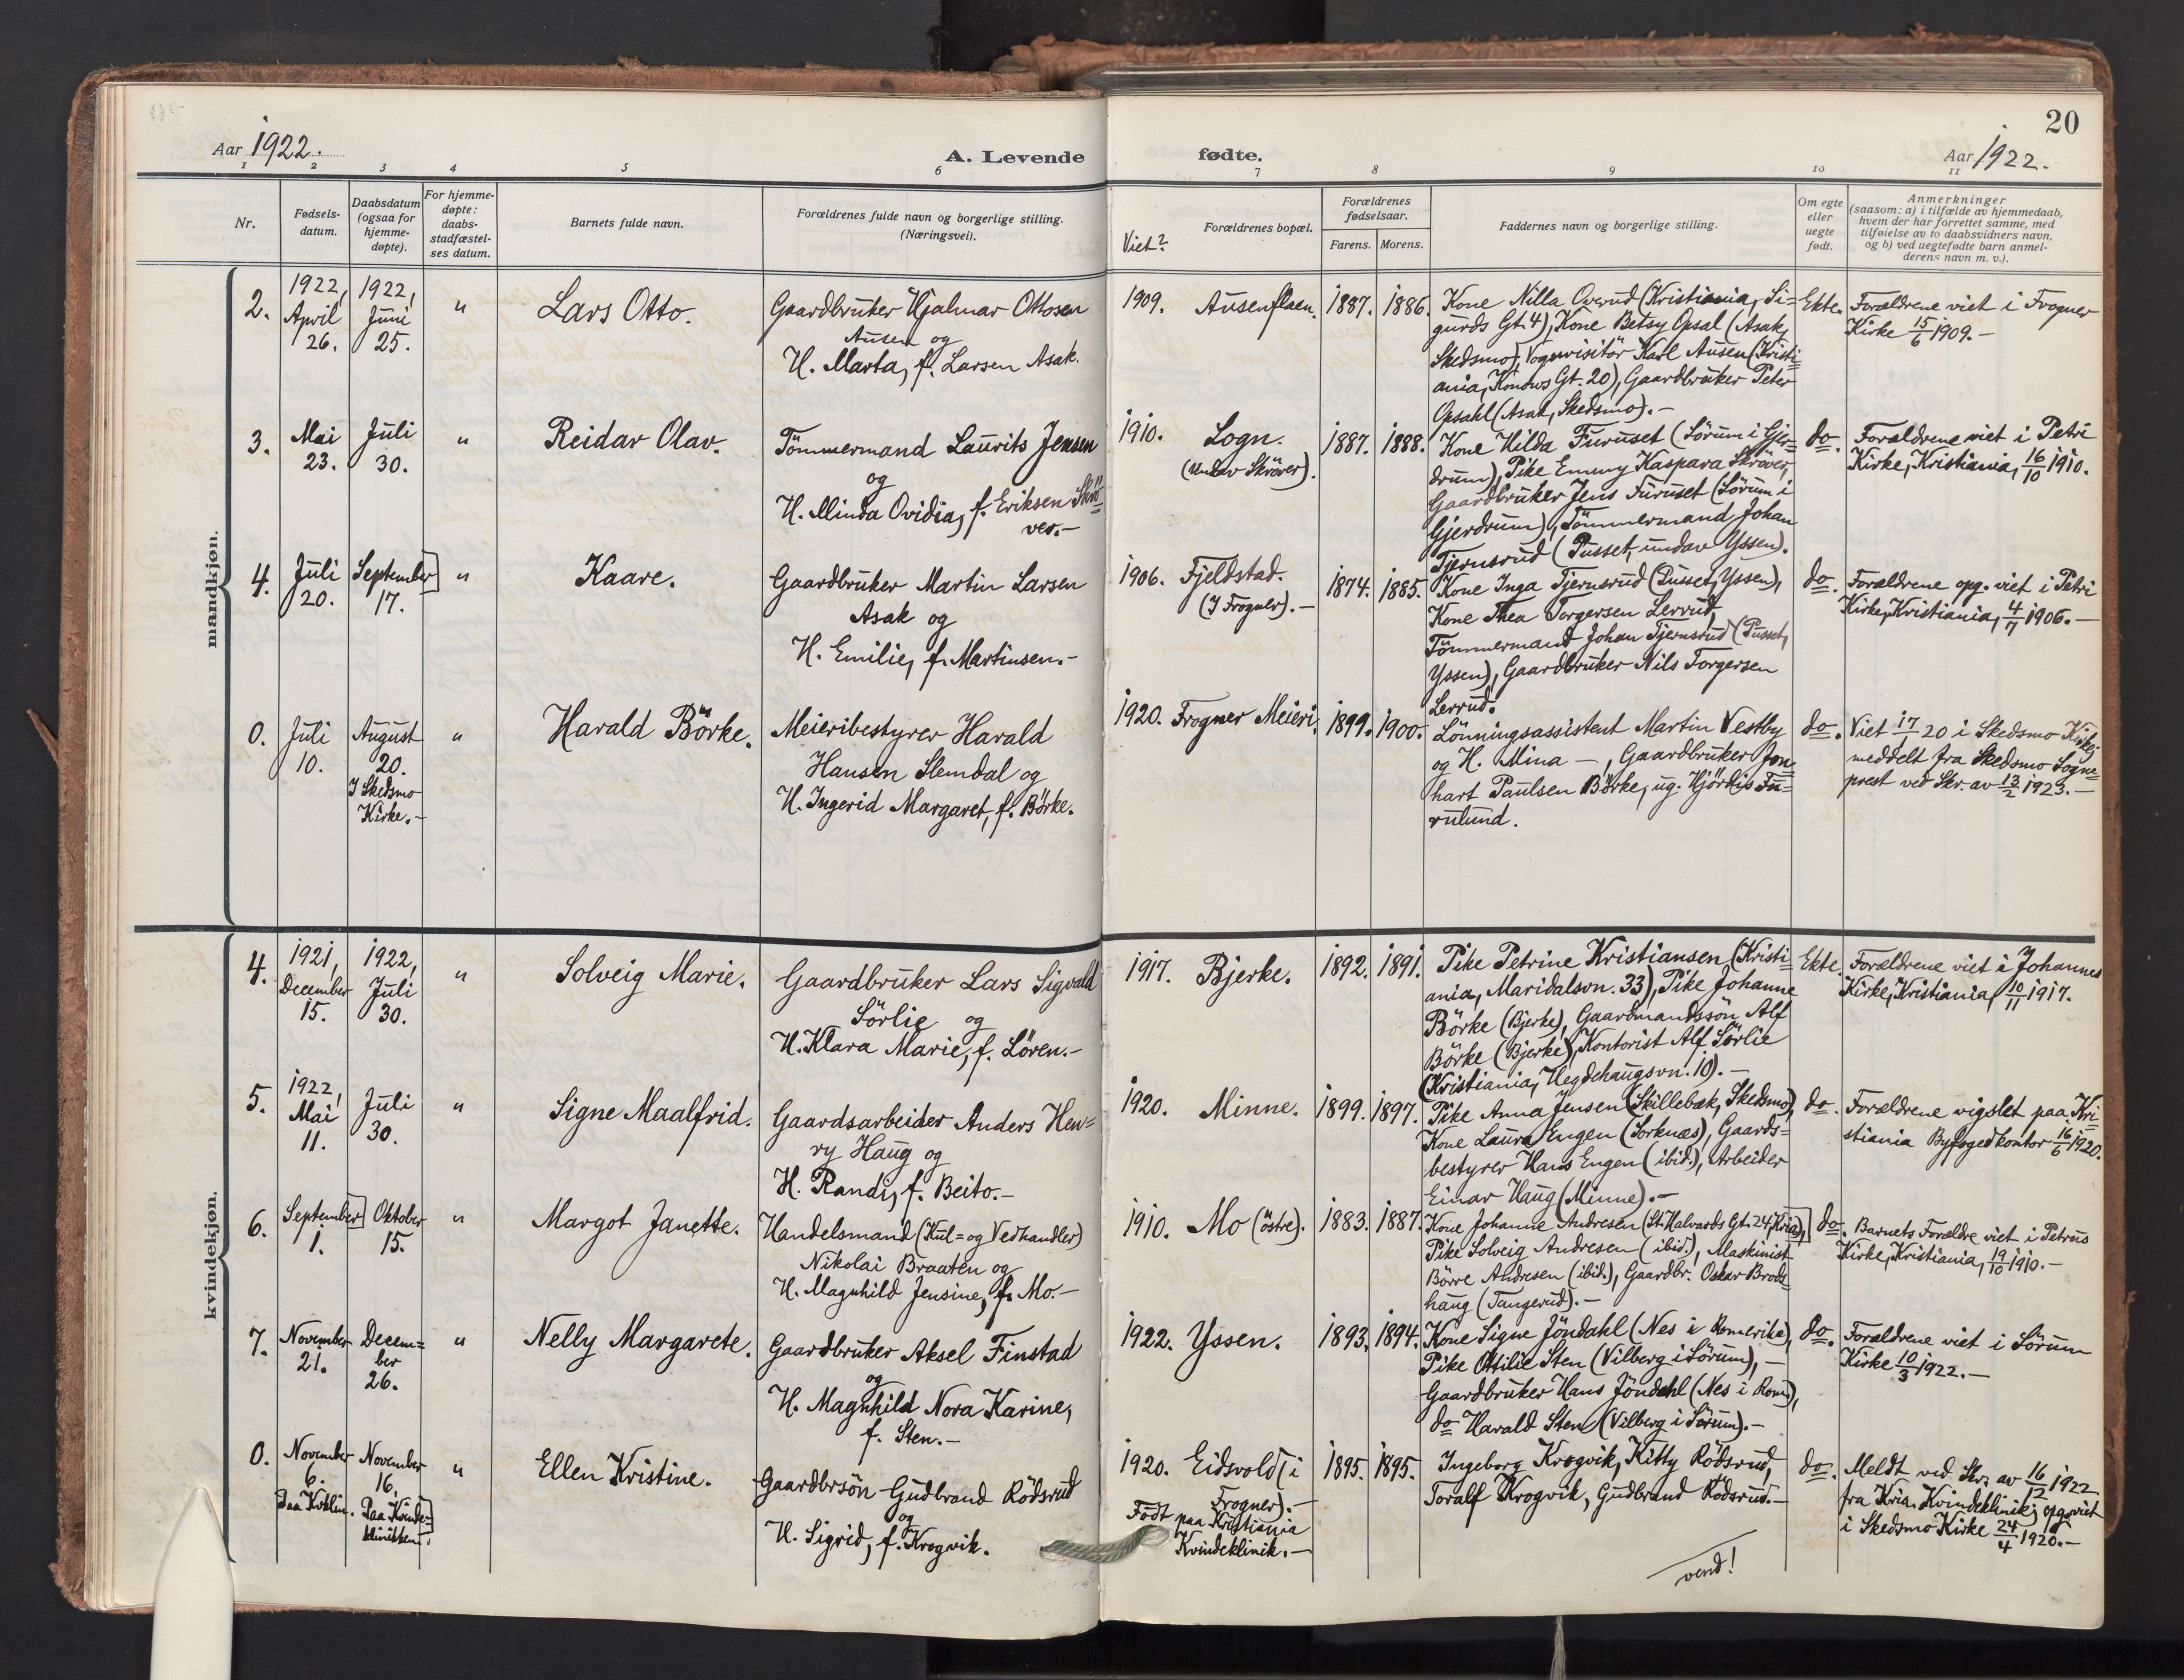 20
Aar 1922.
A. Levende
fødte.
Aar 1922.
1 2 3 4 5 6 7 8 9 10 11
Nr.
Fødsels-
datum.
Daabsdatum
(ogsaa for
hjemme-
døpte).
For hjemme-
døpte:
daabs-
stadfæstel-
ses datum.
Barnets fulde navn.
Forældrenes fulde navn og borgerlige stilling.
(Næringsvei).
Viet?
Forældrenes bopæl.
Forældrenes
fødselsaar.
Farens. Morens.
Faddernes navn og borgerlige stilling.
Om egte
eller
uegte
født.
Anmerkninger
(saasom: a) i tilfælde av hjemmedaab,
hvem der har forrettet samme, med
tilføielse av to daabsvidners navn,
og b) ved uegtefødte barn anmel-
derens navn m. v.).
mandkjøn.
2.
1922,
April
26.
1922,
Juni
25.
"
Lars Otto.
Gaardbruker Hjalmar Ottosen
Ausen og
H. Marta, f. Larsen Asak.
1909.
Ausenflaen.
1887. 1886.
Kone Nilla Overud (Kristiania, Si-
gurds Gt. 4), Kone Betsy Opsal (Asak,
Skedsmo), Vognvisitör Karl Ausen (Kristi=
ania, Konows Gt. 20), Gaardbruker Peter
Opsahl (Asak, Skedsmo).-
Ekte.
Forældrene viet i Frogner
Kirke 15/6 1909.-
3.
Mai
23.
Juli
30.
"
Reidar Olav.
Tömmermand Laurits Jensen
og
H. Minda Ovidia, f. Eriksen Skrö=
ver.-
1910.
Logn.
(undav Skröver).
1887. 1888.
Kone Hilda Furuset (Sörum i Gjer=
drum), Pike Emmy Kaspara Skröver,
Gaardbruker Jens Furuset (Sörum i
Gjerdrum), Tömmermand Johan
Tjernsrud (Pusset, undav Yssen).
do.
Forældrene viet i Petri
Kirke, Kristiania, 16/10 1910.
4.
Juli
20.
September
17.
"
Kaare.
Gaardbruker Martin Larsen
Asak og
H. Emilie, f. Martinsen.-
1906.
Fjeldstad.
(I Frogner).-
1874. 1885.
Kone Inga Tjernsrud (Pusset, Yssen),
Kone Thea Torgersen Lerrud,
Tömmermand Johan Tjernsrud (Pusset,
Yssen), Gaardbruker Nils Torgersen
Lerrud.
do.
Forældrene opg. viet i Petri
Kirke, Kristiania, 4/7 1906.-
0.
Juli
10.
August
20.
I Skedsmo
Kirke.-
"
Harald Börke.
Meieribestyrer Harald
Hansen Slemdal og
H. Ingerid Margaret, f. Börke.
1920.
Frogner Meieri.
1899. 1900.
Lönningsassistent Martin Vestby
og H. Mina -, Gaardbruker Jon=
hart Paulsen Börke, ug. Hjördis Fu=
rulund.
do.
Viet 17/1 20 i Skedsmo Kirke,
meddelt fra Skedsmo Sogne=
prest ved Skr. av 13/2 1923.-
kvindekjøn.
4.
1921,
December
15.
1922,
Juli
30.
"
Solveig Marie.
Gaardbruker Lars Sigvald
Sörlie og
H. Klara Marie, f. Lören.-
1917.
Bjerke.
1892. 1891.
Pike Petrine Kristiansen (Kristi=
ania, Maridalsvn. 33), Pike Johanne
Börke (Bjerke), Gaardmandssön Alf
Börke (Bjerke), Kontorist Alf Sörlie
(Kristiania, Hegdehaugsvn. 10).-
Ekte.
Forældrene viet i Johannes
Kirke, Kristiania, 10/11 1917.
5.
1922,
Mai
11.
Juli
30.
"
Signe Maalfrid.
Gaardsarbeider Anders Hen=
ry Haug og
H. Randi, f. Beito.-
1920.
Minne.
1899. 1897.
Pike Anna Jensen (Skillebæk, Skedsmo),
Kone Laura Engen (Sorknæs), Gaards=
bestyrer Hans Engen (ibid.), Arbeider
Einar Haug (Minne).-
do.
Forældrene vigslet paa Kri=
stiania Byfogedkontor 16/6 1920.
6.
September
1.
Oktober
15.
"
Margot Janette.
Handelsmand (Kul= og Vedhandler)
Nikolai Braaten og
H. Magnhild Jensine, f. Mo.-
1910.
Mo (östre).
1883. 1887.
Kone Johanne Andresen (St. Halvards Gt. 24, Kria),
Pike Solveig Andresen (ibid.), Maskinist
Börre Andresen (ibid.), Gaardbr. Oskar Brods=
haug (Tangerud).-
do.
Barnets Forældre viet i Petrus
Kirke, Kristiania, 19/10 1910.-
7.
November
21.
Decem=
ber
26.
"
Nelly Margarete.
Gaardbruker Aksel Finstad
og
H. Magnhild Nora Karine,
f. Sten.-
1922.
Yssen.
1893. 1894.
Kone Signe Jöndahl (Nes i Romerike),
Pike Ottilie Sten (Vilberg i Sörum),-
Gaardbruker Hans Jöndahl (Nes i Rom.),
do Harald Sten (Vilberg i Sörum).-
do.
Forældrene viet i Sörum
Kirke 10/3 1922.-
0.
November
6.
Paa Kvklin.
November
16.
Paa Kvinde=
klinikken.
"
Ellen Kristine.
Gaardbrsön Gudbrand Rödsrud
og
H. Sigrid, f. Krogvik.
1920.
Eidsvold (i
Frogner).-
Födt paa Kristiania
Kvindeklinik.-
1895. 1895.
Ingeborg Krogvik, Kitty Rödsrud,
Toralf Krogvik, Gudbrand Rödsrud.-
do.
Meldt ved Skr. av 16/12 1922
fra Kria. Kvindeklinik; opg. viet
i Skedsmo Kirke 24/4 1920.-
vend!